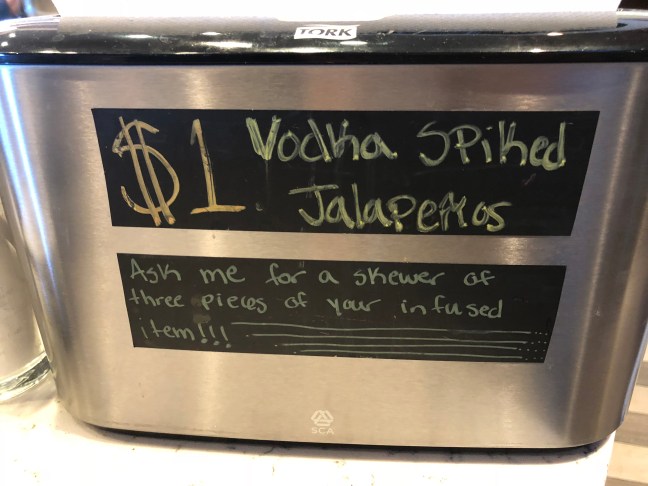 TORK
$1 Vodka Spiked
Jalapeños
Ask me for a skewer of
three pieces of your infused
item!!!
SCA